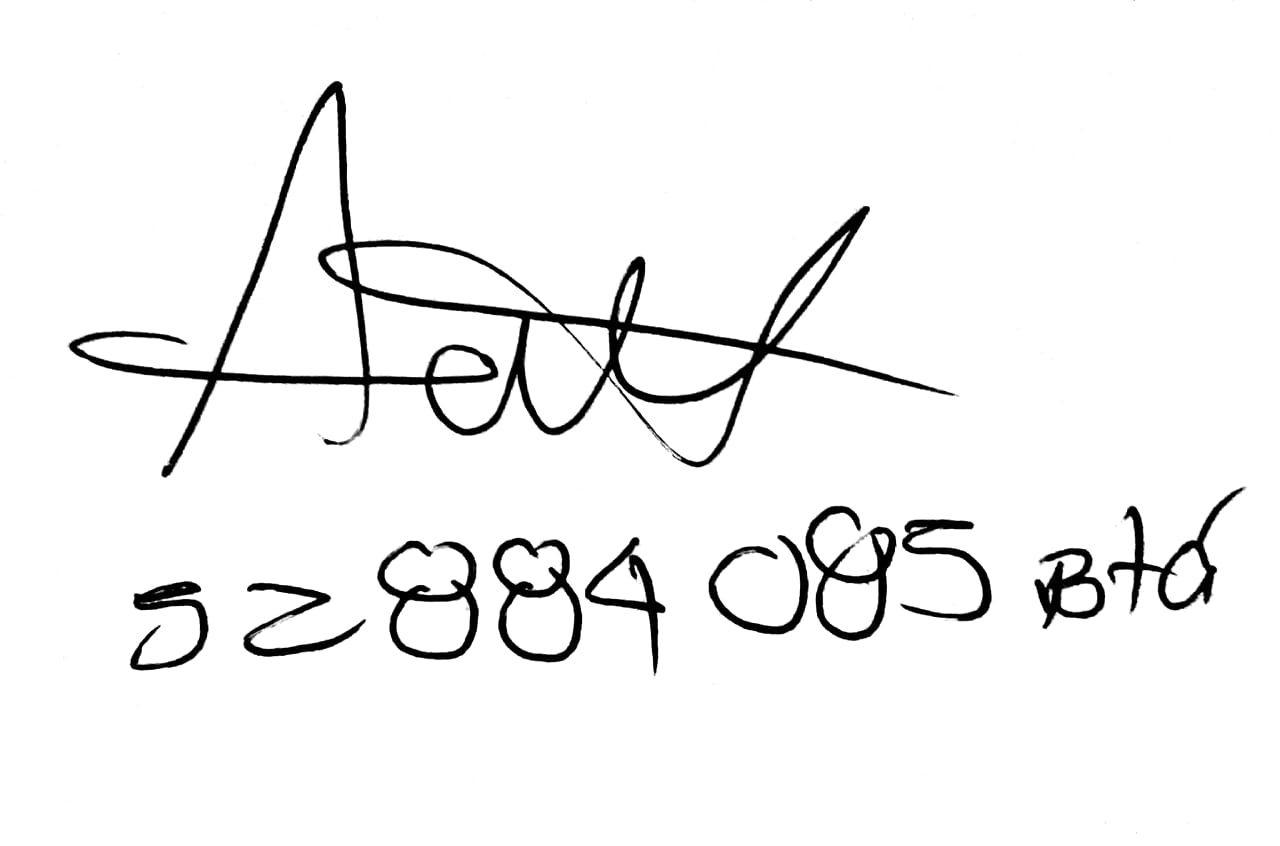 52884085 Btá